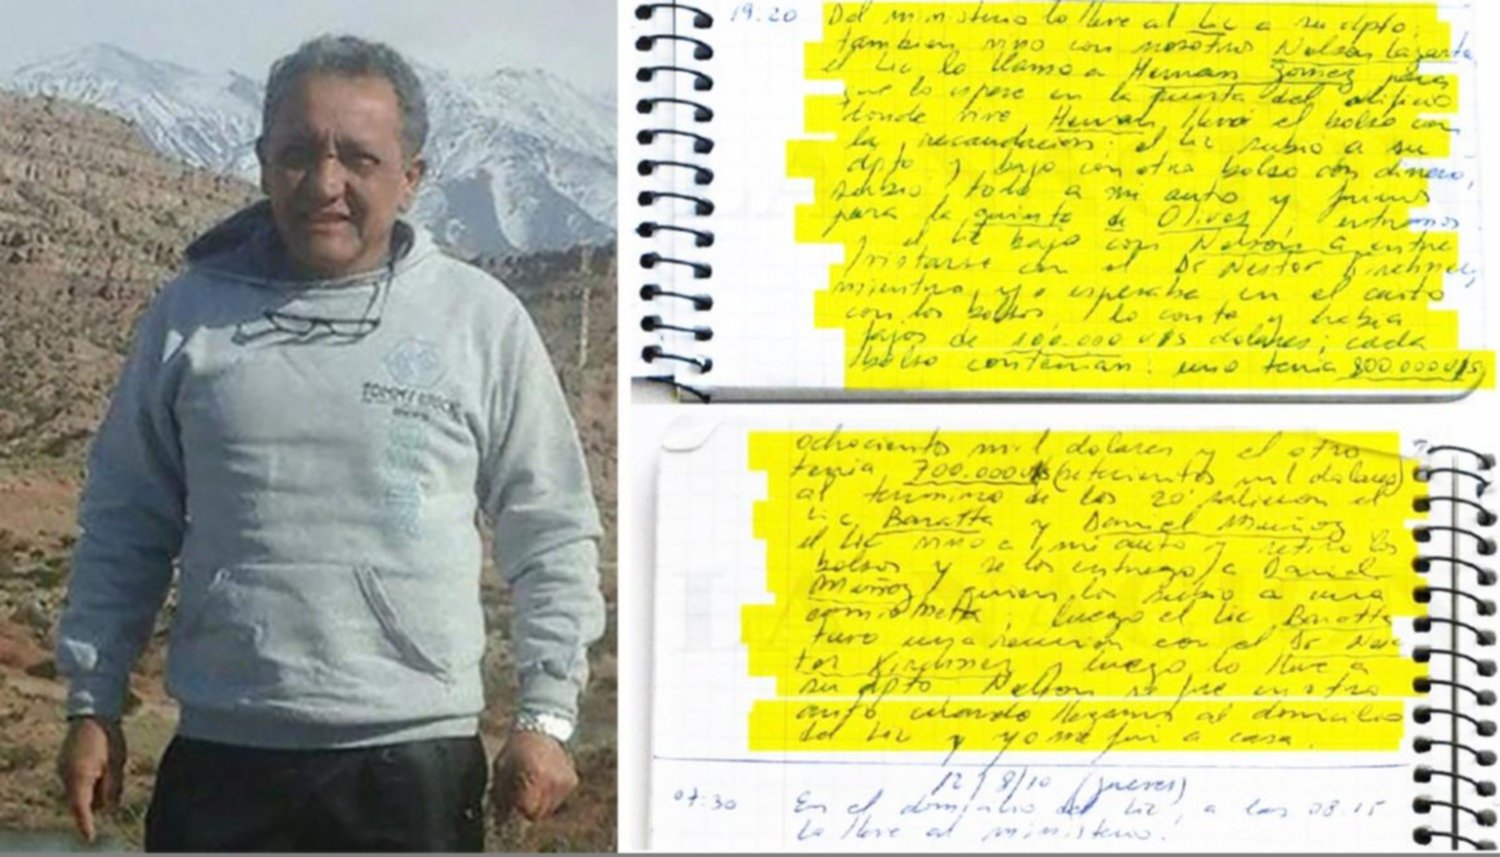 TOMMY
19:20 Del ministerio lo lleve al Lic a su dpto,
tambien vino con nosotros Nelson Lazarte
el Lic lo llamo a Hernan Gomez para
que lo espere en la puerta del edificio
donde vive, Hernan llevó el bolso con
la recaudacion. el Lic subio a su
dpto y bajo con otro bolso con dinero,
subio todo a mi auto y fuimos
para la quinta de Olivos, entramos
y el Lic bajo con Nelson a entre
vistarse con el Dr Nestor Kirchner,
mientras yo esperaba en el auto
con los bolsos, lo conte y habia
fajos de 100.000 U$S dolares; cada
bolso contenian: uno tenia 800.000 U$S
ochocientos mil dolares y el otro
tenia 700.000 U$S (setecientos mil dolares)
al termino de los 20' salieron el
Lic Baratta y Daniel Muñoz
el Lic vino a mi auto y retiro los
bolsos y se los entrego a Daniel
Muñoz, quien los subio a una
camioneta, luego el Lic Baratta
tuvo una reunion con el Dr Nes
tor Kirchner y luego lo lleve a
su dpto Nelson se fue en otro
auto cuando llegamos al domicilio
del Lic y yo me fui a casa.
12/8/10 (jueves)
07:30 En el domicilio del Lic, a las 08.15
lo lleve al ministerio.